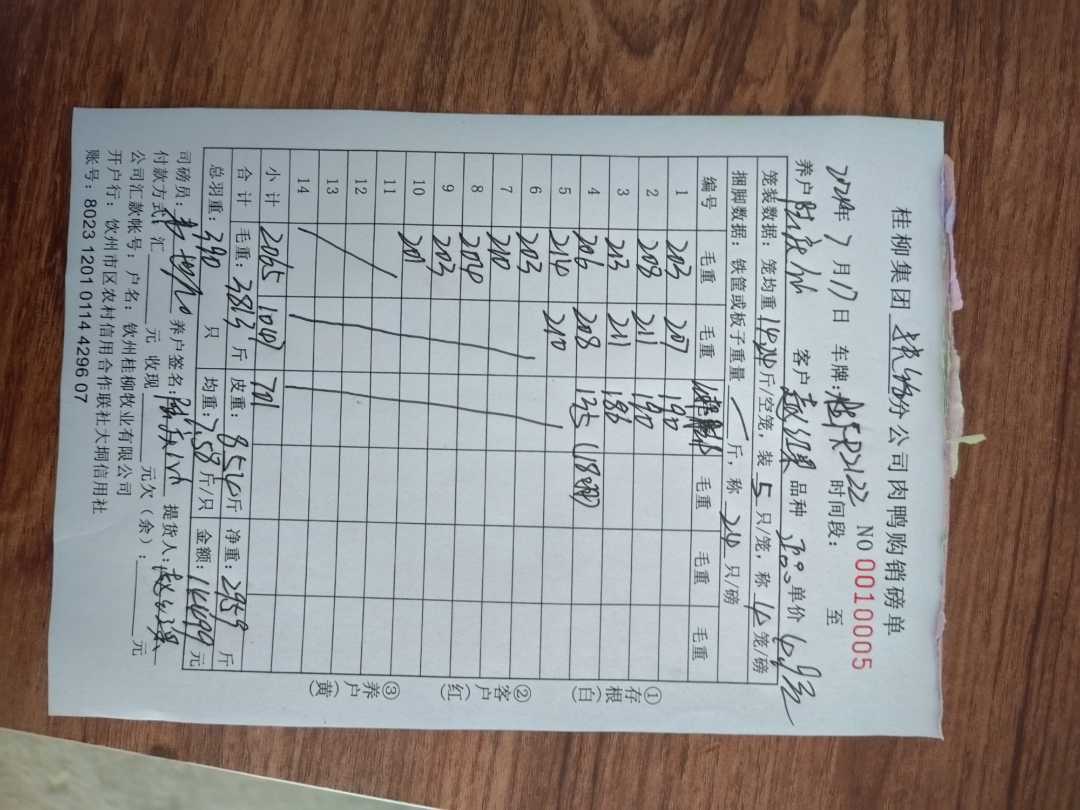 桂柳集团 分公司肉鸭购销磅单
2024年 7月17日 车牌: 时间段: 至 NO 0010005
养户 客户 品种 单价
笼装数据: 笼均重 斤/空笼, 装 5 只/笼, 称 4 笼/磅
捆脚数据: 铁筐或板子重量 斤, 称 24 只/磅
编号 毛重 毛重 毛重 毛重 毛重
1 203 207 190
2 208 211 190
3 213 211 186
4 206 208 135 (18只)
5 214 210
6 203
7 210
8 204
9 203
10 201
11
12
13
14
小计 2065 1047 701
合计 毛重: 3813 斤 皮重: 854 斤 净重: 2959 斤
总羽重: 390 只 均重: 7.58 斤/只 金额: 元
司磅员: 养户签名: 提货人:
付款方式: 汇 元 收现 元欠(余): 元
公司汇款帐号: 户名: 钦州桂柳牧业有限公司
开户行: 钦州市区农村信用合作联社大垌信用社
账号: 8023 1201 0114 4296 07
①存根(白)
②客户(红)
③养户(黄)